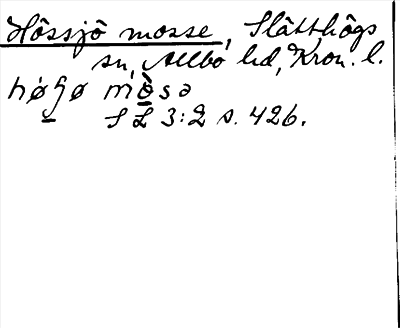 Hössjö mosse, Slätthögs
sn, Allbo hd, Kron. l.
hø̠ɧø mò̠sə
S L 3:2 s. 426.